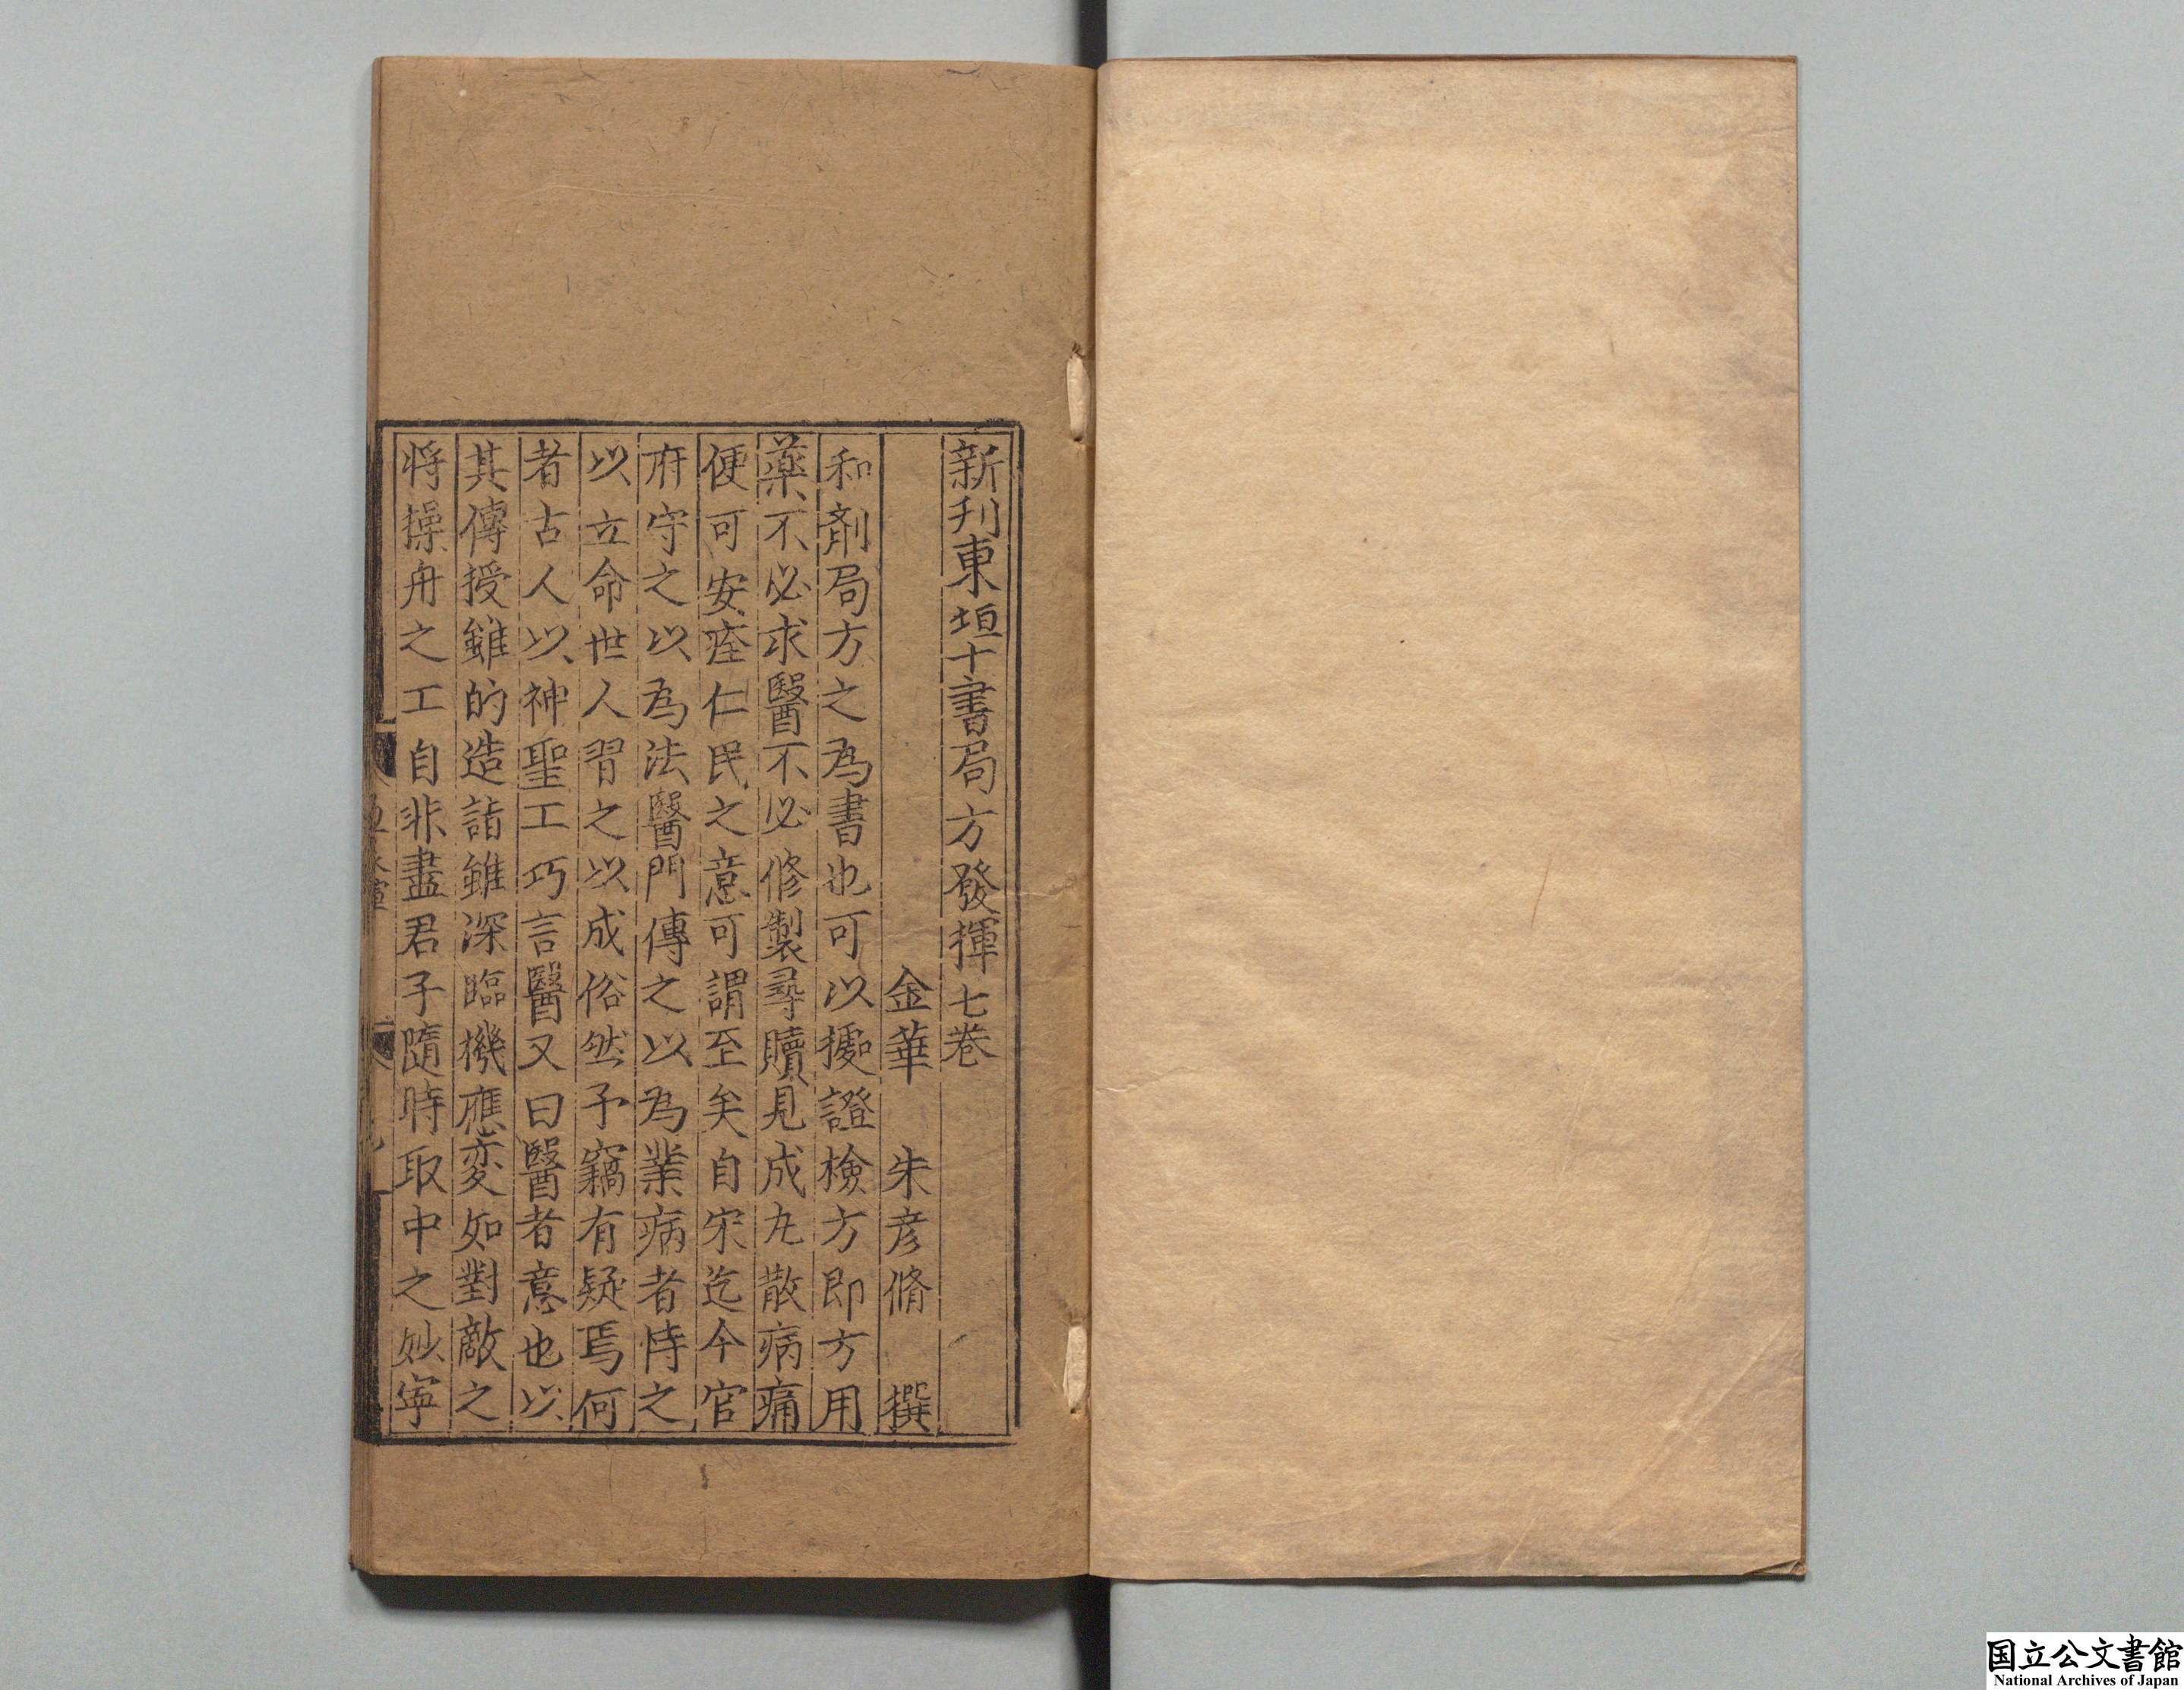 新刋東垣十書局方發揮七卷
金華　朱彦脩　撰
和劑局方之爲書也可以據證檢方即方用
藥不必求醫不必修製尋贖見成丸散病痛
便可安痊仁民之意可謂至矣自宋迄今官
府守之以爲法醫門傳之以爲業病者恃之
以立命世人習之以成俗然予竊有疑焉何
者古人以神聖工巧言醫又曰醫者意也以
其傳授雖的造詣雖深臨機應変如對敵之
将操舟之工自非盡君子隨時取中之妙寧
国立公文書館
National Archives of Japan